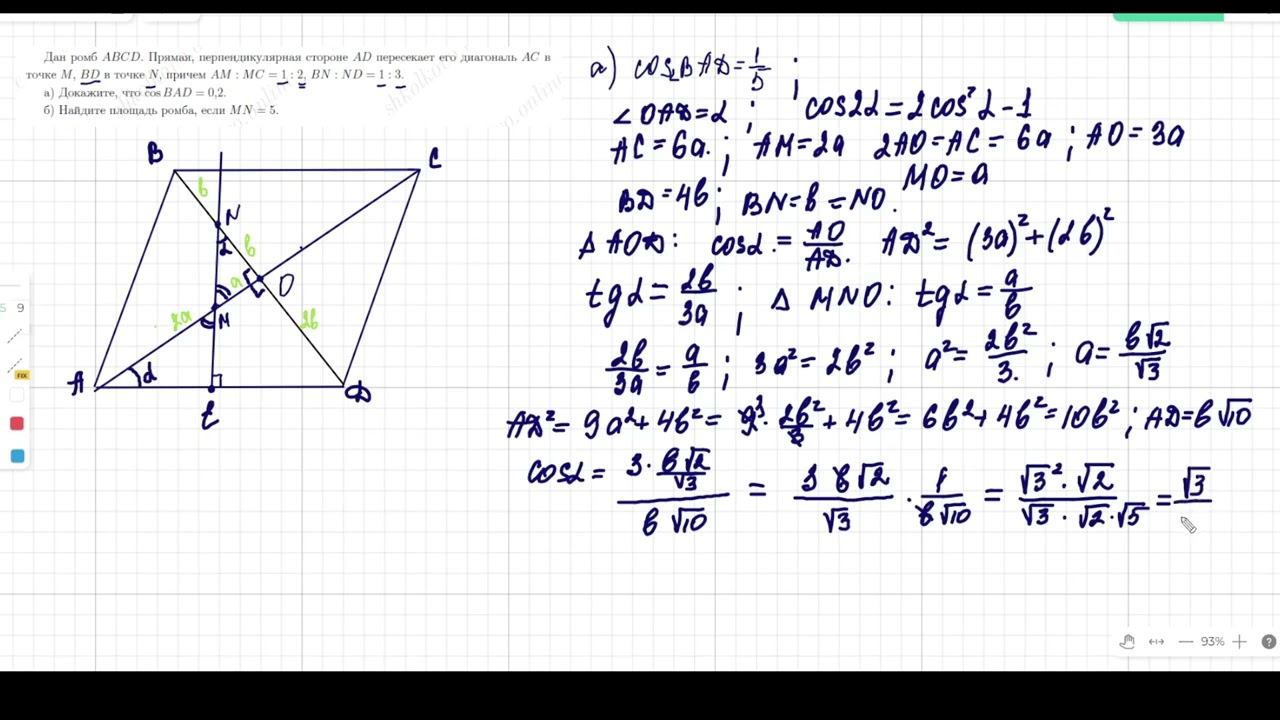 Дан ромб ABCD. Прямая, перпендикулярная стороне AD пересекает его диагональ AC в
точке M, BD в точке N, причем AM : MC = 1 : 2, BN : ND = 1 : 3.
а) Докажите, что cos BAD = 0,2.
б) Найдите площадь ромба, если MN = 5.
а) cos BAD = 1/5 ;
∠OAD = α ; cos2α = 2cos²α - 1
AC = 6a ; AM = 2a 2AO = AC = 6a ; AO = 3a
MO = a
BD = 4b ; BN = b = NO.
△AOD: cosα = AO/AD. AD² = (3a)² + (2b)²
tgα = 2b/3a ; △ MNO: tgα = a/b
2b/3a = a/b ; 3a² = 2b² ; a² = 2b²/3. ; a = b√2/√3
AD² = 9a² + 4b² = 9³ · 2b²/3 + 4b² = 6b² + 4b² = 10b² ; AD = b√10
cosα = 3 · b√2/√3 / b√10 = 3b√2/√3 · 1/b√10 = √3² · √2 / √3 · √2 · √5 = √3
B
C
b
N
α
b
a
O
2a
M
2b
A
α
E
D
5 9
FIX
93%
?